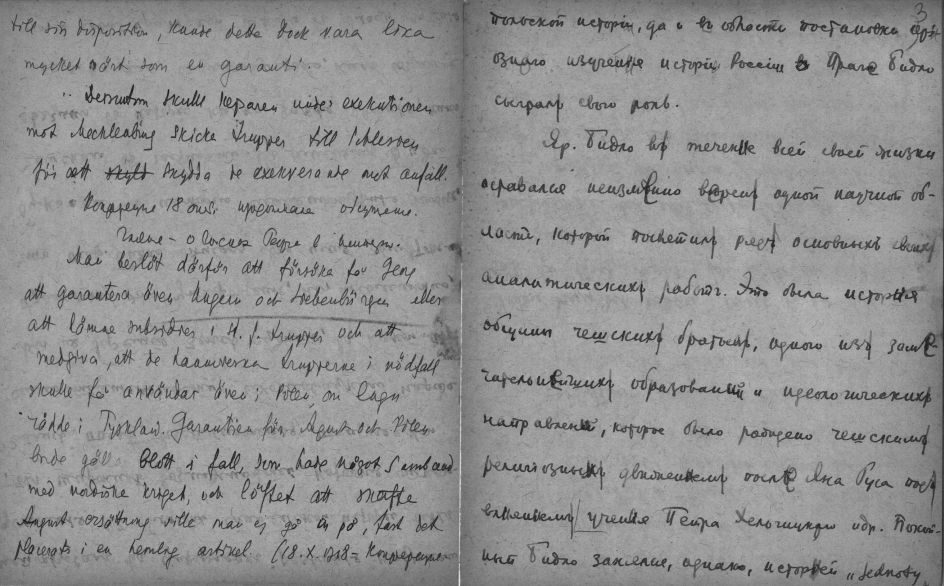 till sin disposition, kunde detta dock vara lika
mycket värt som en garanti.
Dessutom skulle kejsaren under exekutionen
mot Mecklenburg skicka trupper till Schlesien
för att skydda de exekverande mot anfall.
Конференция 18 продолжала
о
Man beslöt därför att försöka få Georg
att garantera även Ungern och Siebenbürgen eller
att lämna subsidier i st. f. trupper och att
medgiva, att de hannoverska trupperna i nödfall
skulle få användas även i Polen, om lugn
rådde i Tyskland. Garantien för August och Polen
borde gälla blott i fall, som hade något samband
med nordiska kriget, och löftet att skaffa
August ersättning ville man ej gå in på, fast det
placerats i en hemlig artikel. (18.X.1718 =
3
польской исторiи, да и въ области постановки
изученiя исторiи Россiи в Праге Бидло
сыгралъ свою роль.
Яр. Бидло въ теченiе всей своей жизни
оставался неизмѣнно вѣренъ одной научной об-
ласти, которой посвятилъ рядъ основныхъ своихъ
аналитическихъ работъ. Это была исторiя
общины чешскихъ братьевъ, одного изъ замѣ-
чательнѣйшихъ образованiй и идеологическихъ
направленiй, которое было рождено чешскимъ
религiознымъ движенiемъ послѣ Яна Гуса подъ
влiянiемъ ученiя Петра Хельчицкаго и др. Покой-
ный Бидло занялся, однако, исторiей „Jednoty